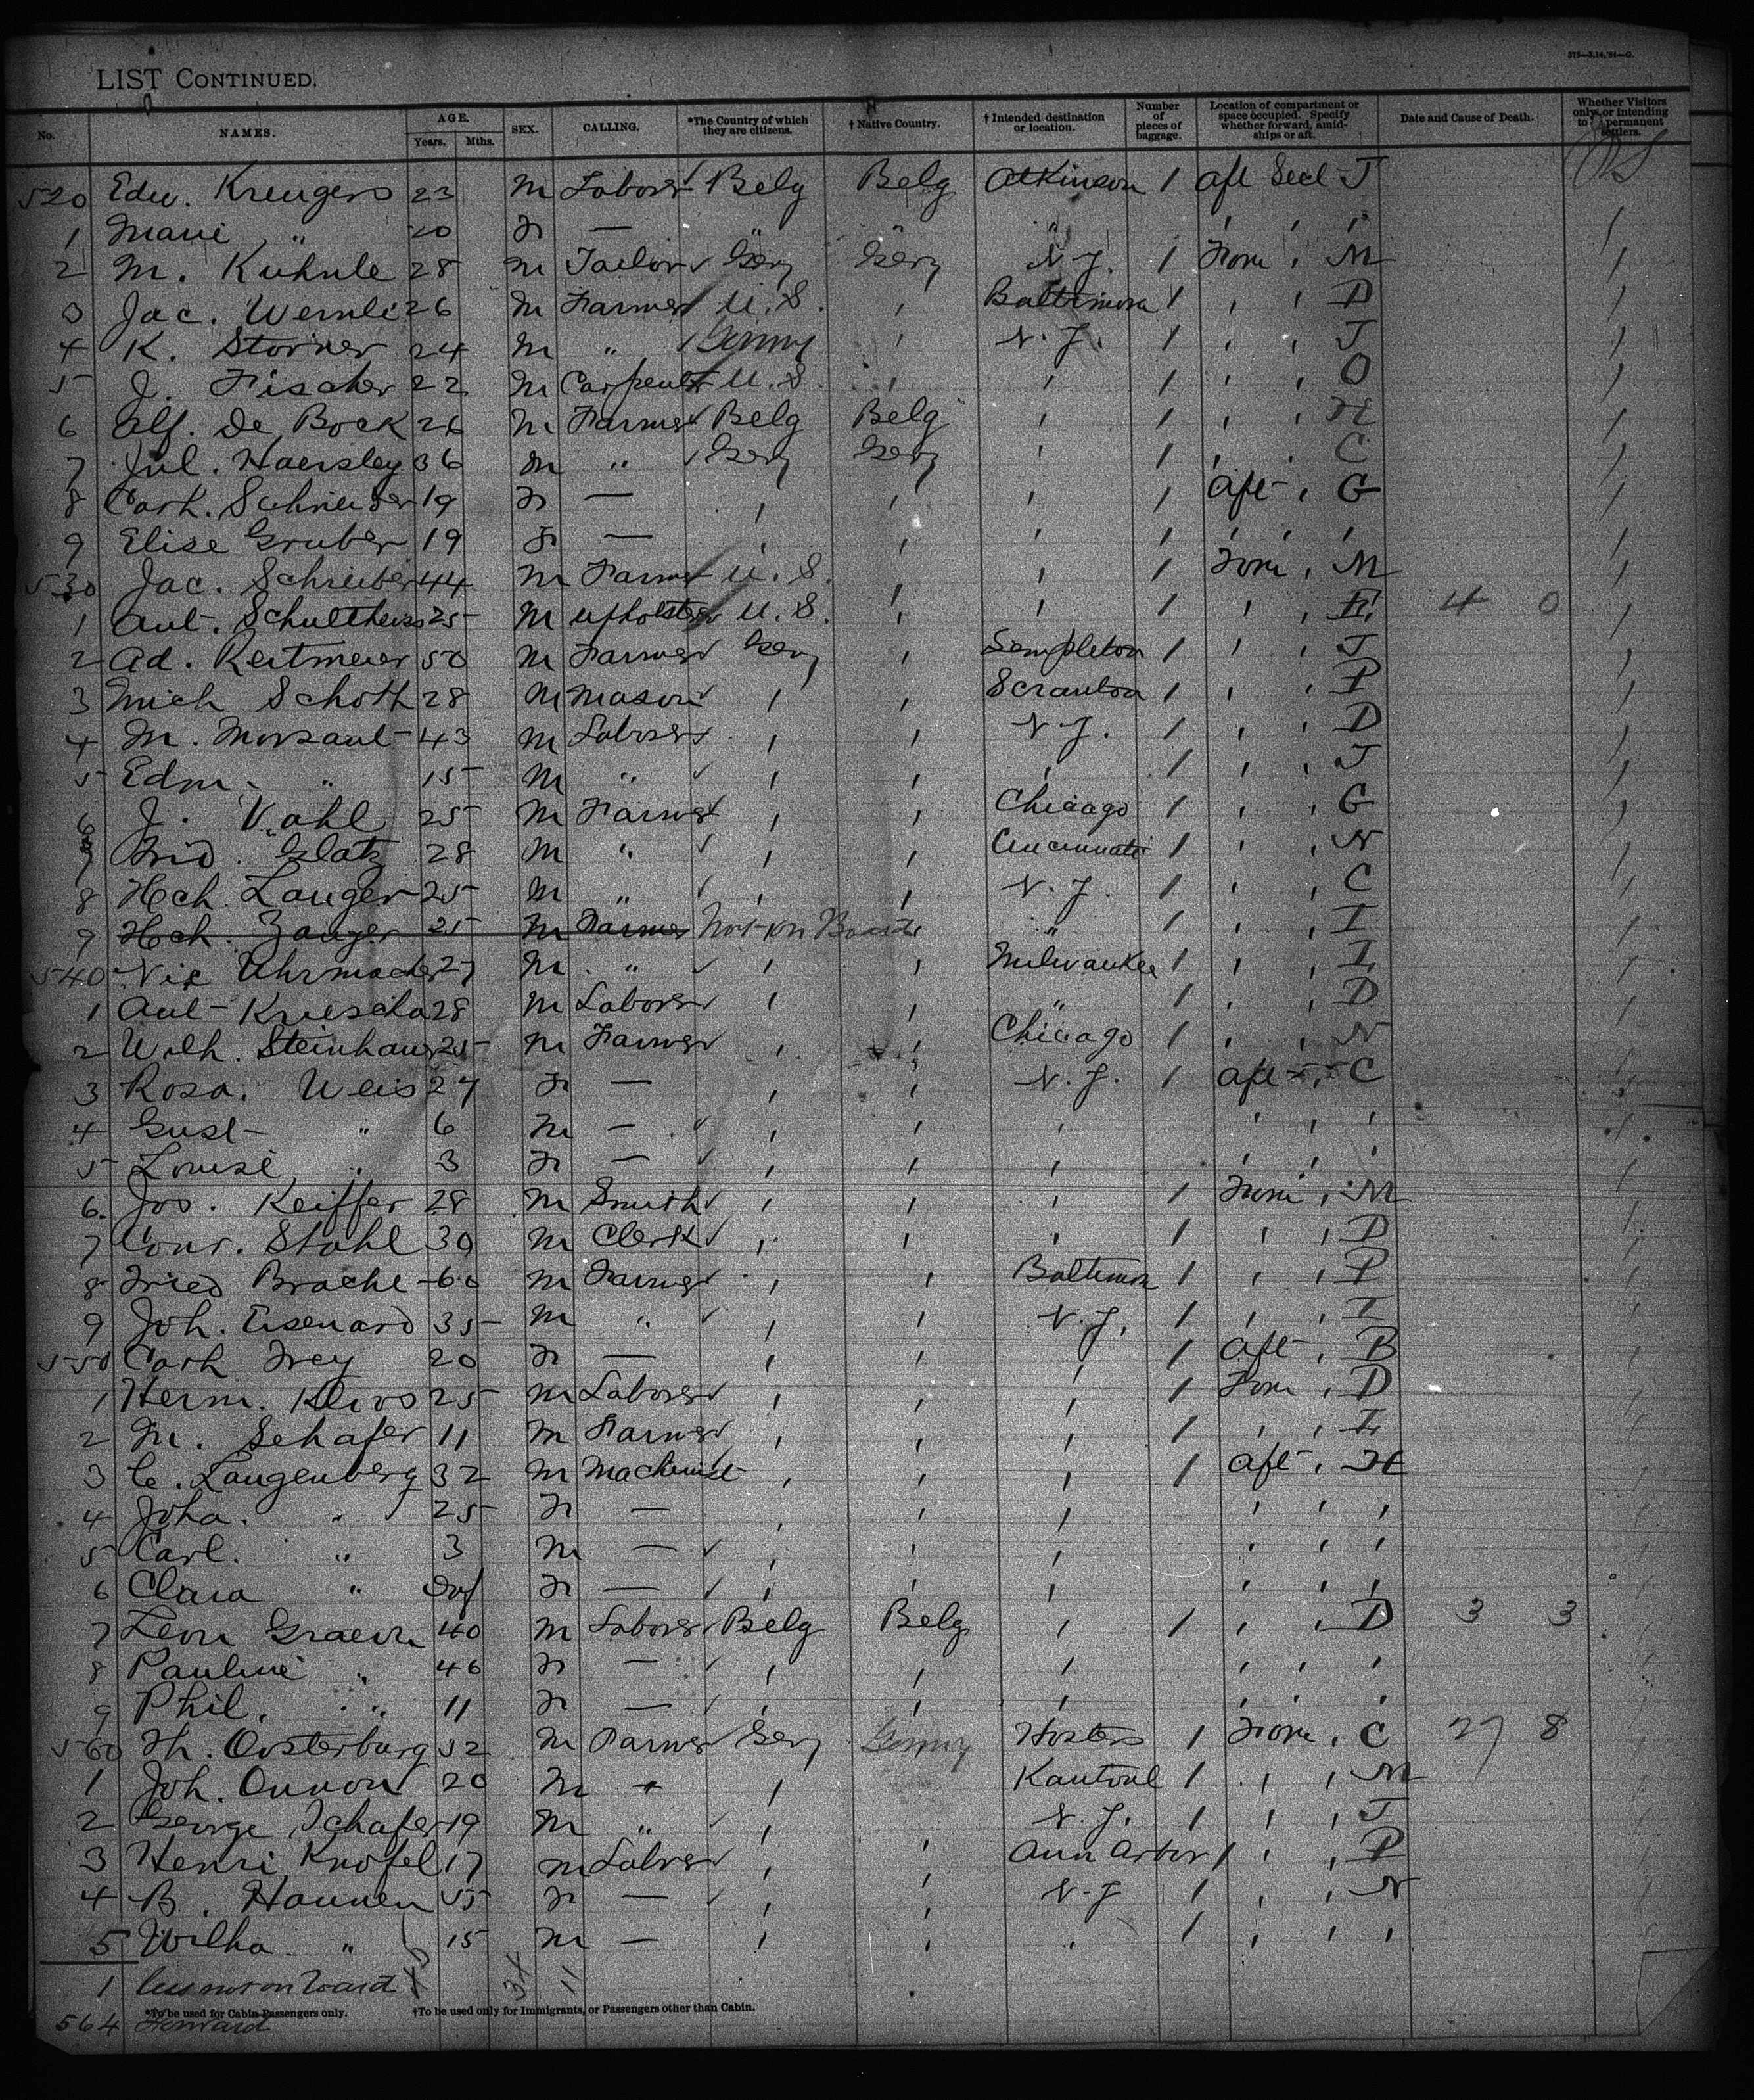 375—7,14,'91—G.
LIST CONTINUED.
No. NAMES. AGE. Years. Mths. SEX. CALLING. *The Country of which they are citizens. † Native Country. † Intended destination or location. Number of pieces of baggage. Location of compartment or space occupied. Specify whether forward, amidships or aft. Date and Cause of Death. Whether Visitors only, or intending to be permanent settlers.
520 Edw. Kreugers 23 M Laborer Belg Belg Atkinson 1 aft Secl J
1 Marie " 20 F — " " " , , ,
2 M. Kuhnle 28 M Tailor Gery Gery N.J. 1 Form , M
3 Jac. Wernli 26 M Farmer U.S. , Baltimore 1 , , D
4 K. Storner 24 M " Germy , N.J. 1 , , J
5 J. Fischer 22 M Carpenter U.S. , , 1 , , O
6 Alf. De Bock 26 M Farmer Belg Belg , 1 , , H
7 Jul. Haersley 36 M " Gery Gery , 1 , , C
8 Cath. Schneider 19 F — , , , 1 aft , G
9 Elise Gruber 19 F — , , , 1 , , ,
530 Jac. Schreiber 44 M Farmer U.S. , , 1 Form , M
1 Ant. Schultheiss 25 M Upholsterer U.S. , , 1 , , E 4 0
2 Ad. Reitmeier 50 M Farmer Gery , Templeton 1 , , J
3 Mich Schoth 28 M Mason , , Scranton 1 , , P
4 M. Morsant 43 M Laborer , , N.J. 1 , , D
5 Edm. " 15 M " , , , 1 , , J
6 J. Vahl 25 M Farmer , , Chicago 1 , , G
7 Frid. Glatz 28 M " , , Cincinnati 1 , , N
8 Hch. Langer 25 M " , , N.J. 1 , , C
9 Hch. Zanger 25 M Farmer Not on Board , " 1 , , I
540 Nic Uhrmacher 27 M " , , Milwaukee 1 , , I
1 Ant Kruescha 28 M Laborer , , " 1 , , D
2 Wilh. Steinhaus 25 M Farmer , , Chicago 1 , , N
3 Rosa. Weis 27 F — , , N.J. 1 aft , C
4 Gust " 6 M — , , , , , ,
5 Louise " 3 F — , , , , , ,
6 Jos. Keiffer 28 M Smith , , , 1 Form , M
7 Conr. Stahl 30 M Clerk , , , 1 , , D
8 Fried Brachl 60 M Farmer , , Baltimore 1 , , P
9 Joh. Eisenard 35 M " , , N.J. 1 , , I
550 Cath Frey 20 F — , , , 1 aft , B
1 Herm. Klivs 25 M Laborer , , , 1 Form , D
2 M. Schafer 11 M Farmer , , , 1 , , I
3 C. Langenberg 32 M Machinist , , , 1 aft , H
4 Joha. " 25 F — , , , , , ,
5 Carl. " 3 M — , , , , , ,
6 Clara " Inf F — , , , , , ,
7 Leon Graeve 40 M Laborer Belg Belg , 1 , , D 3 3
8 Pauline " 46 F — , , , , , ,
9 Phil. " 11 F — , , , , , ,
560 Th. Oosterburg 32 M Farmer Gery Germy Hosters 1 Form , C 27 8
1 Joh. Onnon 20 M " , Kantonl 1 , , M
2 George Schafer 19 M " , N.J. 1 , , J
3 Henri Knofel 17 M Laborer , , Ann Arbor 1 , , P
4 B. Hannen 55 F — , , N.J 1 , , N
5 Wilha " 15 M — , , , 1 , , ,
1 less not on board
*To be used for Cabin Passengers only. †To be used only for Immigrants, or Passengers other than Cabin.
564 Forward